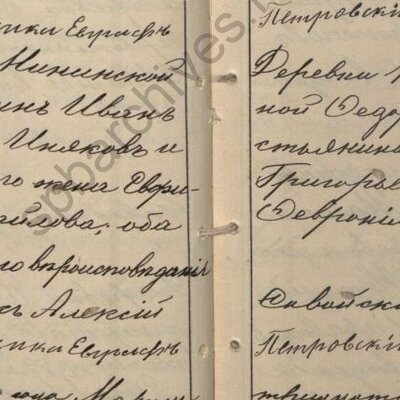 ника Евграфъ
Нининской
инъ Иванъ
Уняковъ и
го жена Еври-
айлова, оба
го вѣроисповѣданія
съ Алексій
ника Евграфъ
Петровскій
Деревни
ной Ѳедор
стьянина
Григорье
Ѳевронія
Савойск
Петровскій
spbarchives